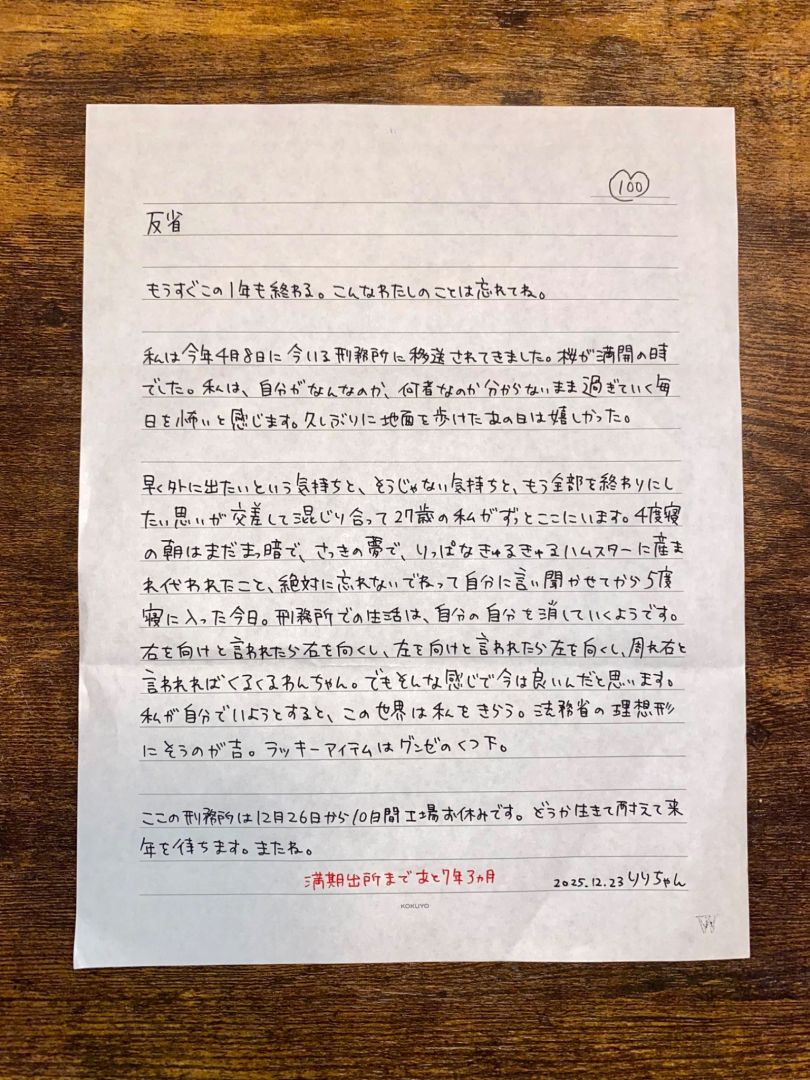 100
反省
もうすぐこの1年も終わる。こんなわたしのことは忘れてね。
私は今年4月8日に今いる刑務所に移送されてきました。桜が満開の時
でした。私は、自分がなんなのか、何者なのか分からないまま過ぎていく毎
日を怖いと感じます。久しぶりに地面を歩けたあの日は嬉しかった。
早く外に出たいという気持ちと、そうじゃない気持ちと、もう全部を終わりにし
たい思いが交差して混じり合って27歳の私がずっとここにいます。4度寝
の朝はまだまっ暗で、さっきの夢で、りっぱなきゅるきゅるハムスターに産ま
れ代われたこと、絶対に忘れないでねって自分に言い聞かせてから5度
寝に入った今日。刑務所での生活は、自分の自分を消していくようです。
右を向けと言われたら右を向くし、左を向けと言われたら左を向くし、周れ右と
言われればくるくるわんちゃん。でもそんな感じで今は良いんだと思います。
私が自分でいようとすると、この世界は私をきらう。法務省の理想形
にそうのが吉。ラッキーアイテムはグンゼのくつ下。
ここの刑務所は12月26日から10日間工場お休みです。どうか生きて耐えて来
年を待ちます。またね。
満期出所まであと7年3ヵ月
2025.12.23りりちゃん
KOKUYO
W